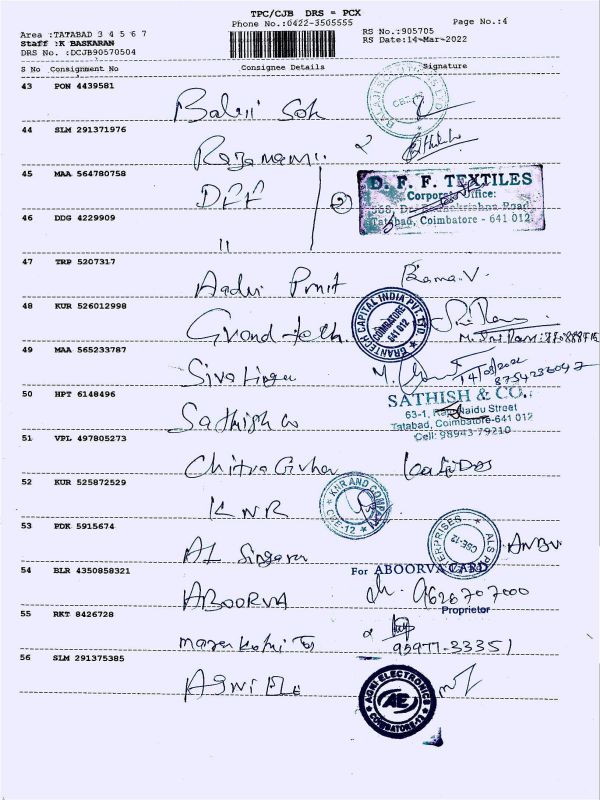 TPC/CJB DRS = PCX
Phone No.:0422-3505555
Page No.:4
Area :TATABAD 3 4 5 6 7
Staff :K BASKARAN
DRS No. :DCJB90570504
RS No.:905705
RS Date:14-Mar-2022
S No Consignment No Consignee Details Signature
43 PON 4439581
Balaji
44 SLM 291371976
45 MAA 564780758
DFF
D. F. F. TEXTILES
Corporate Office:
Road,
Tatabad, Coimbatore - 641 012
46 DDG 4229909
"
47 TRP 5207317
Aadhi Print
Rama.V.
48 KUR 526012998
GRANTECH CAPITAL INDIA PVT. LTD.
COIMBATORE
641 012
49 MAA 565233787
Sivalinga
14/03/2022
8754236092
50 HPT 6148496
Sathish Co
SATHISH & CO.,
63-1, Raju Naidu Street
Tatabad, Coimbatore-641 012
Cell: 98943-79210
51 VPL 497805273
Chitra Guhan
52 KUR 525872529
KNR
KNR AND COMPANY
CBE-12
53 PDK 5915674
AL Singaram
CBE-12
ANBU
54 BLR 4350858321
ABOORVA
For ABOORVA CARD
9626707000
Proprietor
55 RKT 8426728
95977-33351
56 SLM 291375385
AGNI Ele
AGNI ELECTRONICS
AE
COIMBATORE-12